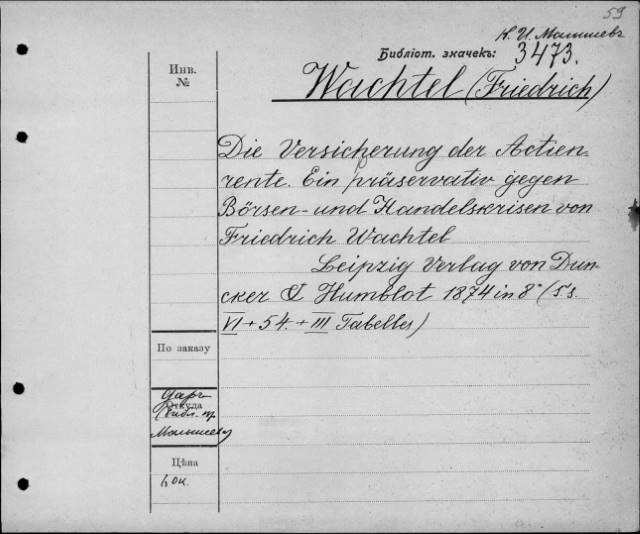 59
Н. И. Малышевъ
Библіот. значекъ: 3473.
Инв.
№
Wachtel (Friedrich)
Die Versicherung der Actien-
rente. Ein präservativ gegen
Börsen- und Handelskrisen von
Friedrich Wachtel
Leipzig Verlag von Dun-
cker & Humblot 1874 in 8° (
VI + 54. + III Tabelles)
По заказу
Даръ
Откуда
Малышева
Цѣна